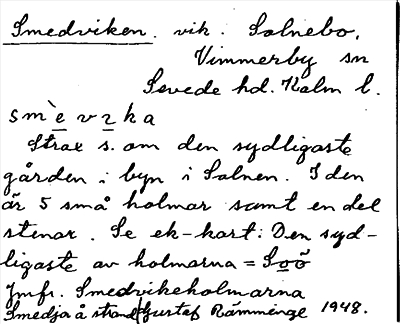 Smedviken. vik. Solnebo,
Vimmerby sn
Sevede hd. Kalm l.
smèvɩka
Strax s. om den sydligaste
gården i byn i Solnen. I den
är 5 små holmar samt en del
stenar. Se ek-kart: Den syd-
ligaste av holmarna =
Jmfr. Smedvikeholmarna
Smedja å strand Gustaf Rämminge 1948.